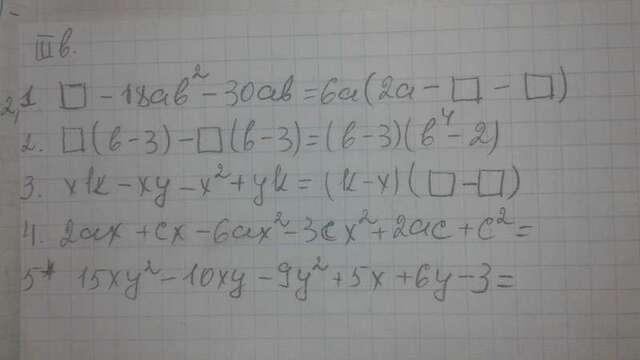 III в.
2,1 □ - 18ab² - 30ab = 6a(2a - □ - □)
2. □(b - 3) - □(b - 3) = (b - 3)(b⁴ - 2)
3. xk - xy - x² + yk = (k - x)(□ - □)
4. 2ax + cx - 6ax² - 3cx² + 2ac + c² =
5* 15xy² - 10xy - 9y² + 5x + 6y - 3 =